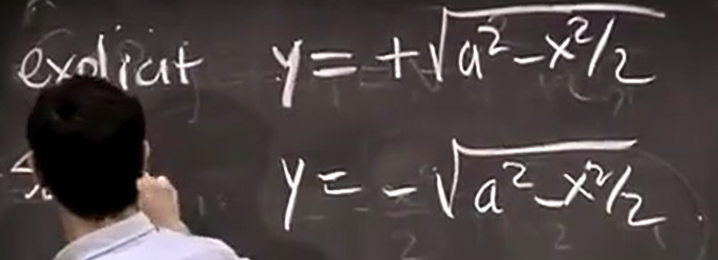 explicit y = +√(a² - x²/2)
y = -√(a² - x²/2)